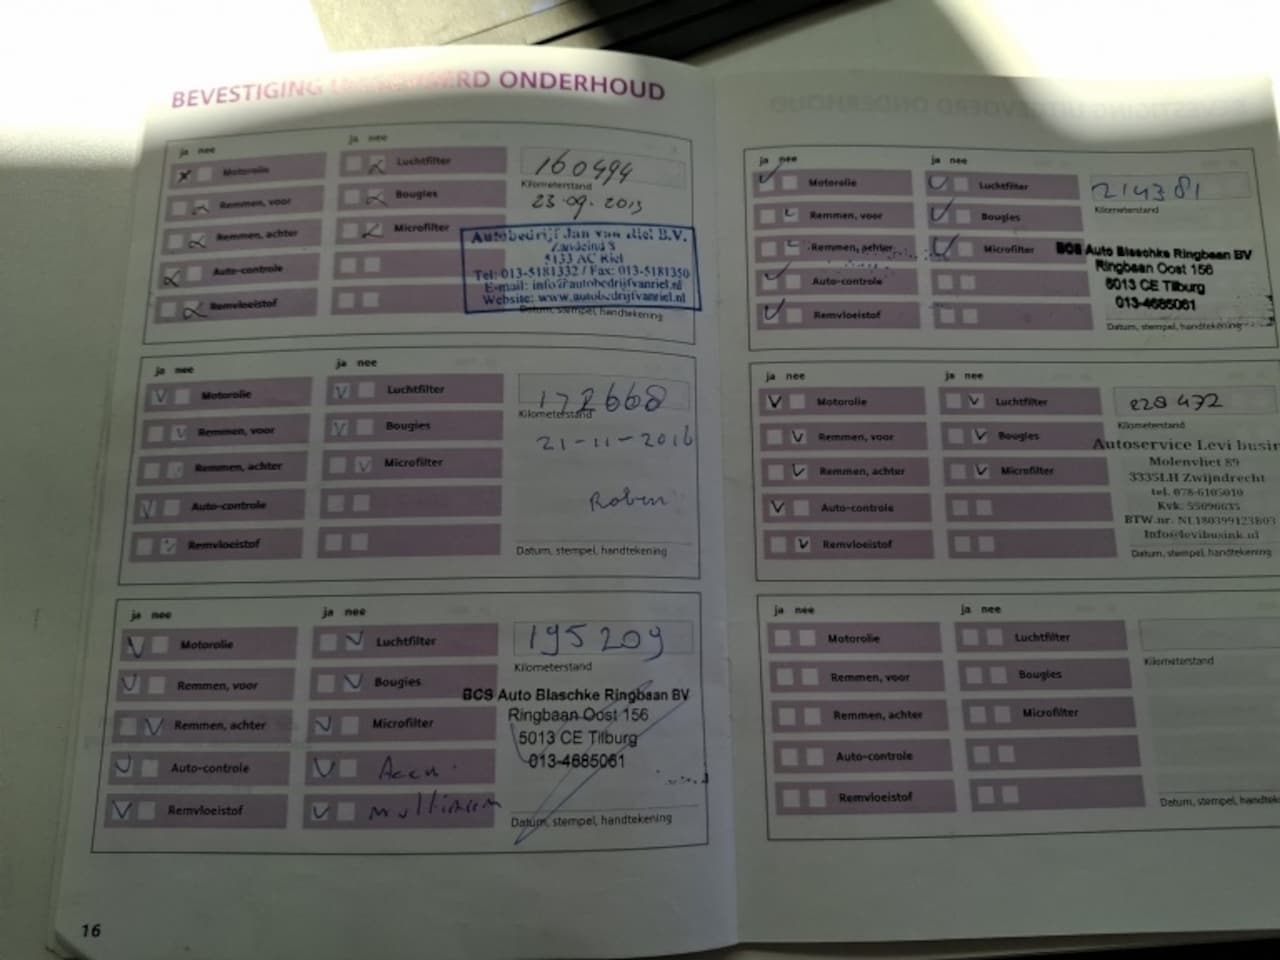 BEVESTIGING UITGEVOERD ONDERHOUD
ja nee
ja nee
Motorolie
Luchtfilter
160494
Kilometerstand
Remmen, voor
Bougies
23-09-2013
Remmen, achter
Microfilter
Autobedrijf Jan van Riel B.V.
Zandeind 8
5133 AC Riel
Tel: 013-5181332 / Fax: 013-5181350
E-mail: info@autobedrijfvanriel.nl
Website: www.autobedrijfvanriel.nl
Auto-controle
Remvloeistof
Datum, stempel, handtekening
ja nee
ja nee
Motorolie
Luchtfilter
172668
Kilometerstand
Remmen, voor
Bougies
21-11-2016
Remmen, achter
Microfilter
Auto-controle
Robin
Remvloeistof
Datum, stempel, handtekening
ja nee
ja nee
Motorolie
Luchtfilter
195209
Kilometerstand
Remmen, voor
Bougies
BCS Auto Blaschke Ringbaan BV
Ringbaan Oost 156
5013 CE Tilburg
013-4685061
Remmen, achter
Microfilter
Auto-controle
Accu
Remvloeistof
Datum, stempel, handtekening
16
ja nee
ja nee
Motorolie
Luchtfilter
214381
Kilometerstand
Remmen, voor
Bougies
Remmen, achter
Microfilter
BCS Auto Blaschke Ringbaan BV
Ringbaan Oost 156
5013 CE Tilburg
013-4685061
Auto-controle
Remvloeistof
Datum, stempel, handtekening
ja nee
ja nee
Motorolie
Luchtfilter
228472
Kilometerstand
Remmen, voor
Bougies
Autoservice Levi busin
Molenvliet 89
3335LH Zwijndrecht
tel. 078-6105010
Kvk. 55696635
BTW.nr. NL180399123B03
Info@levibusink.nl
Remmen, achter
Microfilter
Auto-controle
Remvloeistof
Datum, stempel, handtekening
ja nee
ja nee
Motorolie
Luchtfilter
Kilometerstand
Remmen, voor
Bougies
Remmen, achter
Microfilter
Auto-controle
Remvloeistof
Datum, stempel, handteke